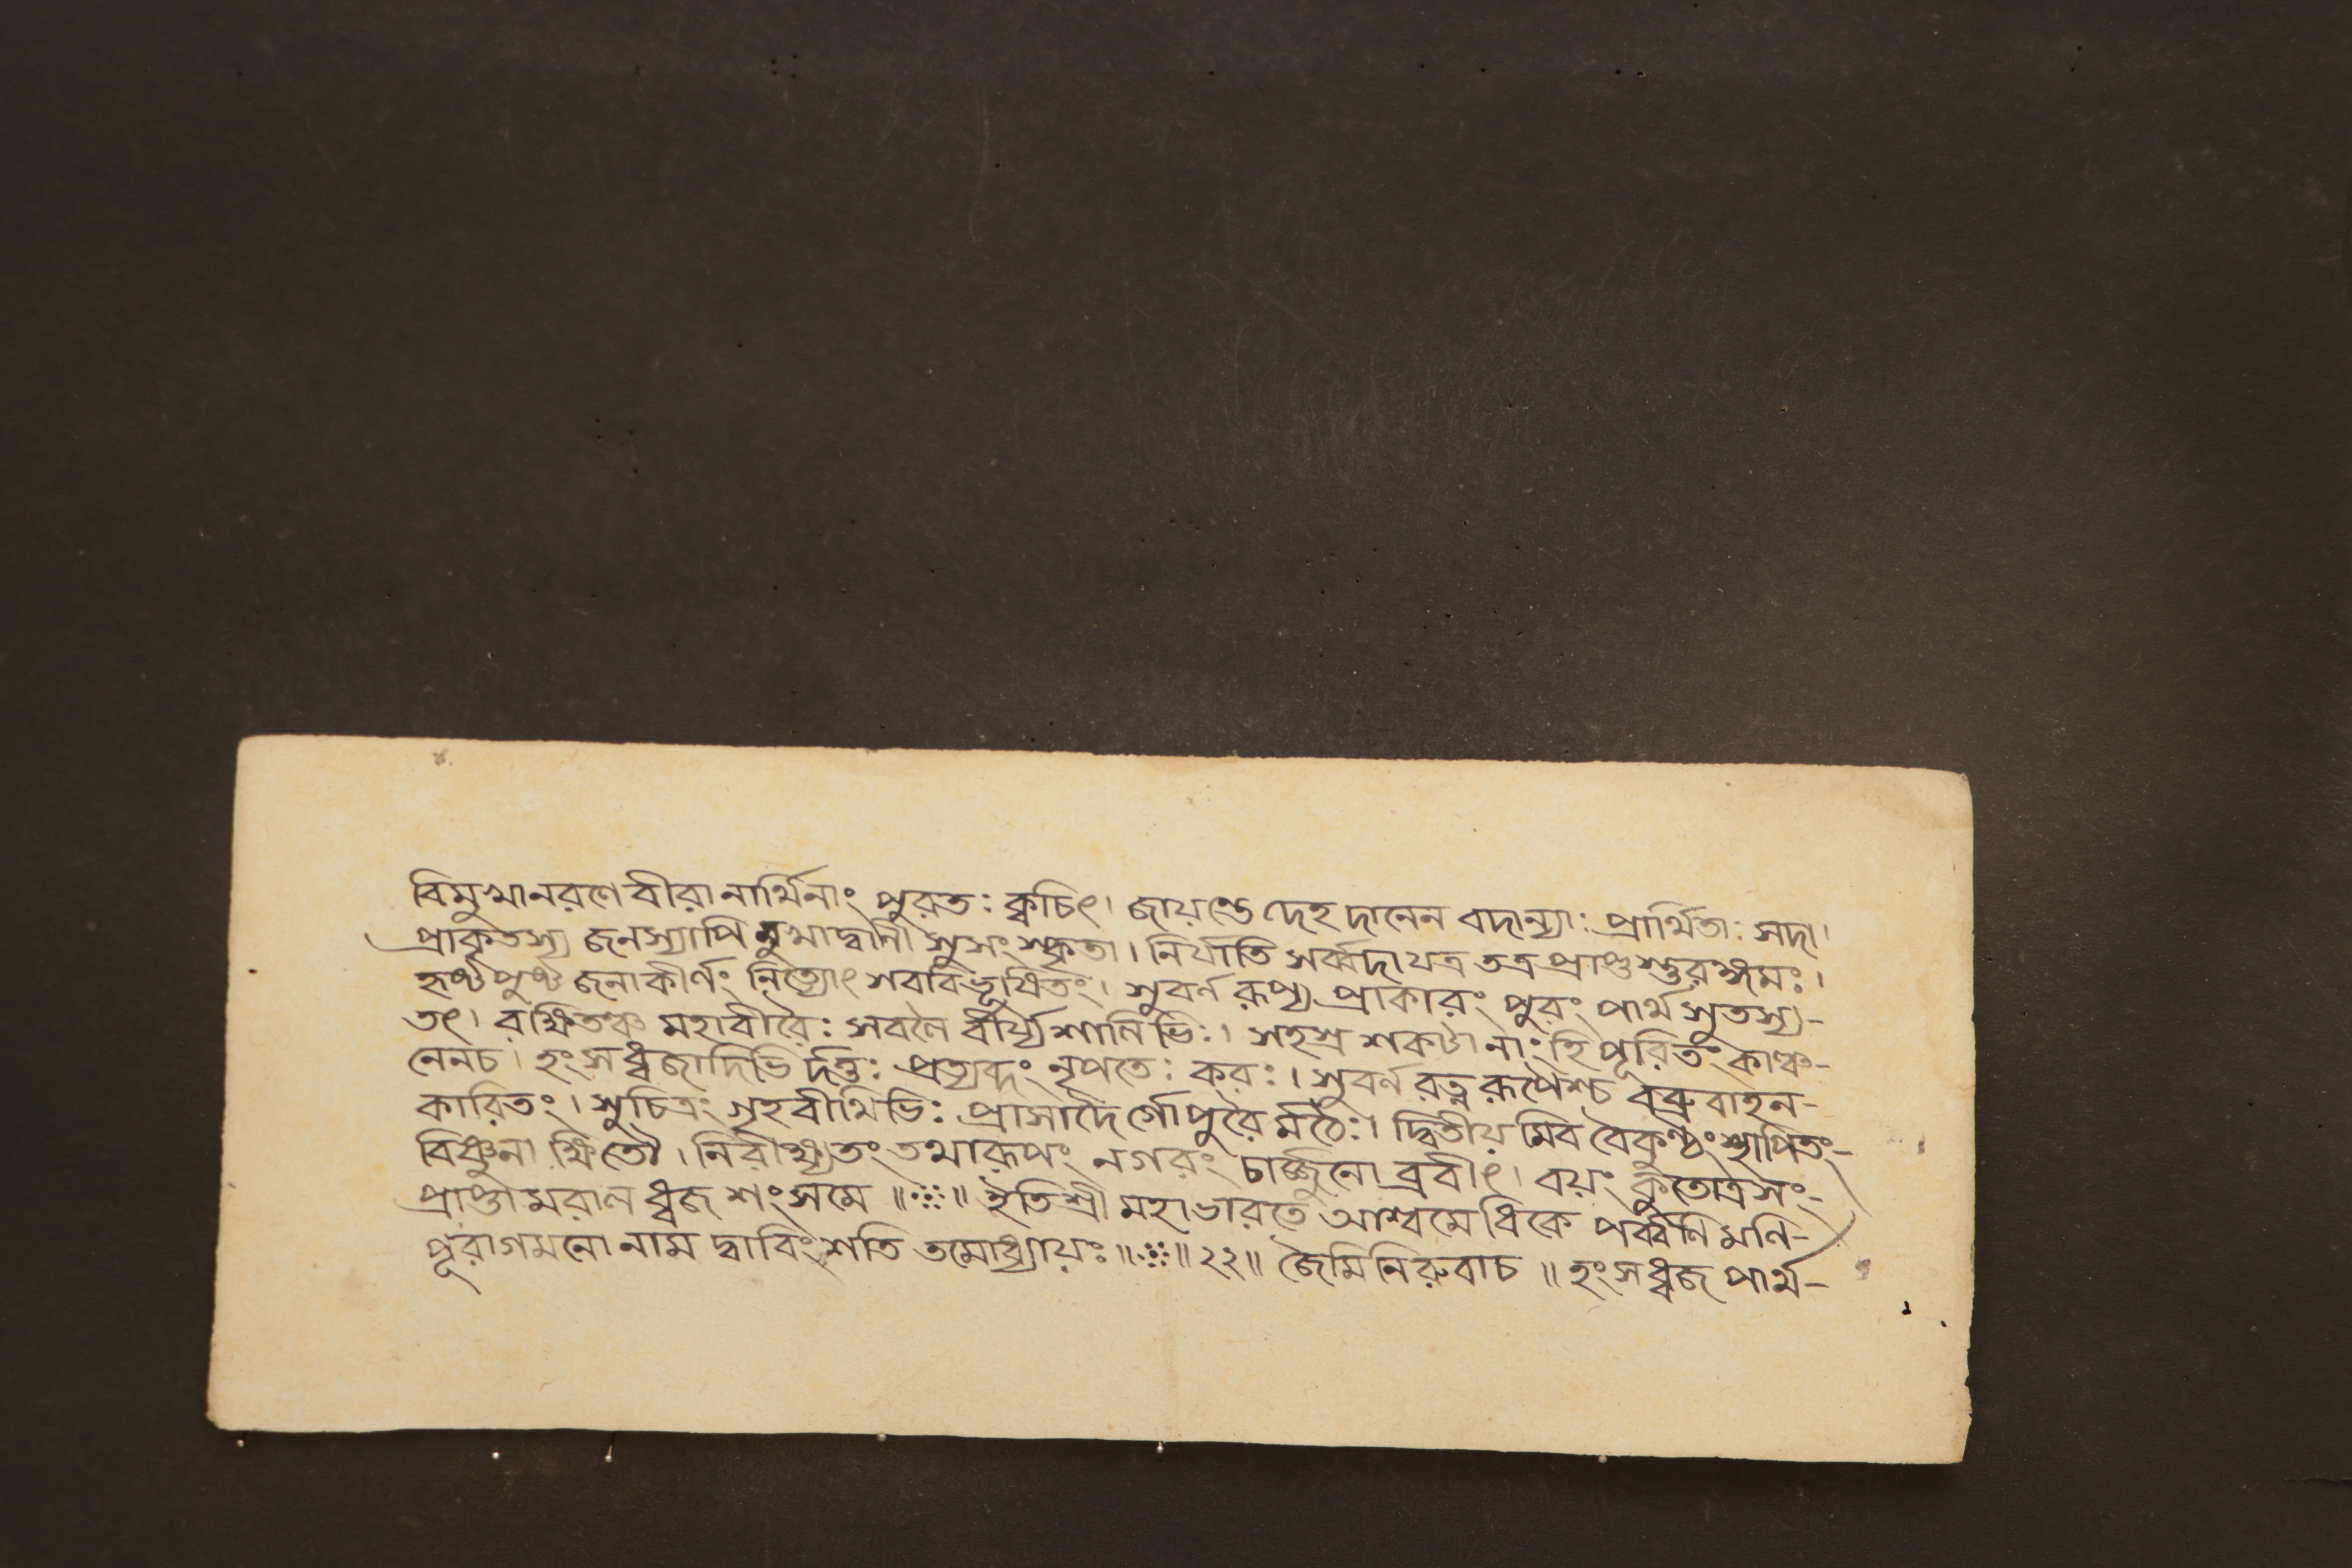 বিমুখানরণে বীরা নার্থিনাং পুরতঃ ক্বচিৎ। জায়ন্তে দেহ দানেন বদান্যাঃ প্রার্থিতাঃ সদা।
প্রাকৃতস্য জনস্যাপি মুখাদ্বানী সুসংস্কৃতা। নির্যাতি সর্ব্বদা যত্র তত্র প্রাপ্তুস্তুরঙ্গমঃ।
হৃষ্টপুষ্ট জনাকীর্ণং নিত্যোৎ শববিভূষিতং। সুবর্ন রূপ্য প্রাকারং পুরং পার্থ সুতস্য-
তৎ। রক্ষিতঞ্চ মহাবীরৈঃ সবলৈ র্বীর্য্য শালিভিঃ। সহস্র শকটানাং হি পূরিতং কাঞ্চ-
নেনচ। হংসধ্বজাদিভি র্দত্তঃ প্রত্যব্দং নৃপতেঃ করঃ। সুবর্ন রত্ন রূপৈশ্চ বব্রুবাহন-
কারিতং। সুচিত্রং গৃহবীথিভিঃ প্রাসাদৈ র্গোপুরৈ র্মঠৈঃ। দ্বিতীয় মিব বৈকুণ্ঠং স্থাপিতং-
বিষ্ণুনা ক্ষিতৌ। নিরীক্ষ্যতং তথারূপং নগরং চার্জ্জুনো ব্রবীৎ। বয়ং কুতোত্র সং-
প্রাপ্তা মরাল ধ্বজ শংসমে ॥ ॥ ইতি শ্রী মহাভারতে আশ্বমেধিকে পর্ব্বনি মনি-
পূরাগমনো নাম দ্বাবিংশতি তমোধ্যায়ঃ ॥ ॥ ২২ ॥ জৈমিনিরুবাচ ॥ হংসধ্বজ পার্থ-